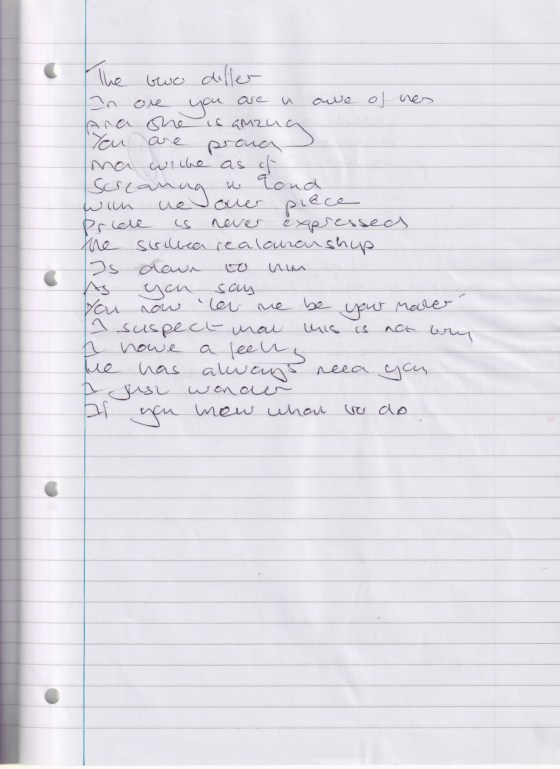 The two differ
In one you are in awe of her
And She is amazing
You are proud
 as if
Screaming it loud
With the other piece
Pride is never expressed
The relationship
Is down to him
As you say
You now 'let me be your mother'
I suspect that this is not why
I have a feeling
He has always need you
I just wonder
If you knew what to do